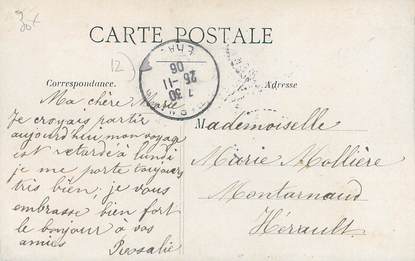 30f
CARTE POSTALE
12
7 30
25-11
06
Correspondance.
Adresse
Ma chère Marie
Je croyais partir
aujourd'hui mon voyage
est retardé à lundi
je me porte toujours
très bien, je vous
embrasse bien fort
le bonjour à vos
amies
Rosalie
Mademoiselle
Marie Mollière
Montarnaud
Hérault